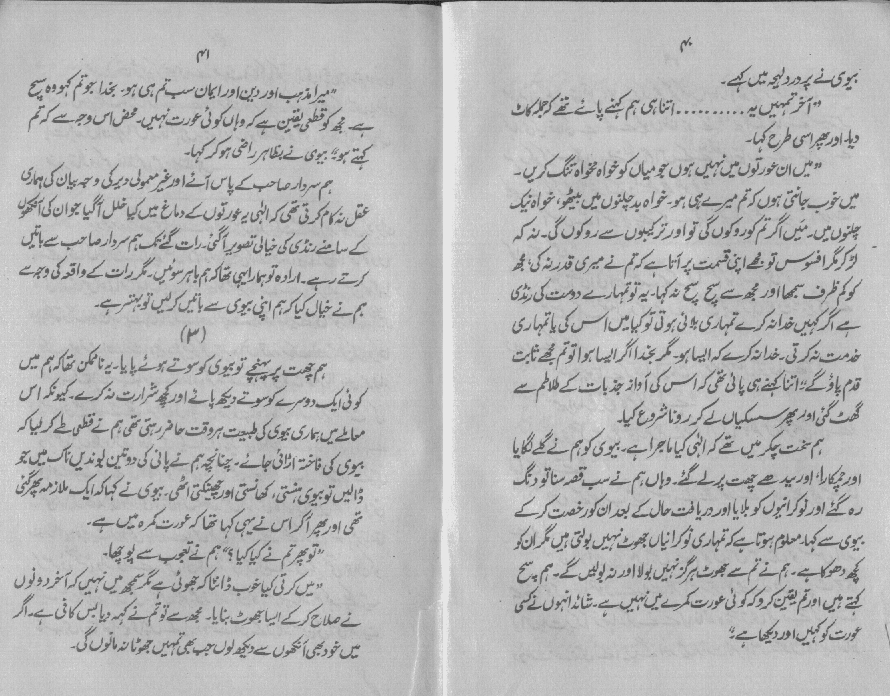 ۴۰
بیوی نے پردرد لہجہ میں کہے۔
”آخر تمہیں یہ .......... اتنا ہی ہم کہنے پائے تھے کہ جملہ کاٹ
دیا۔ اور پھر اسی طرح کہا۔
”میں ان عورتوں میں نہیں ہوں جو میاں کو خواہ مخواہ تنگ کریں۔
میں خوب جانتی ہوں کہ تم میرے ہی ہو۔ خواہ بدچلنوں میں بیٹھو، خواہ نیک
چلنوں میں۔ میں اگر تم کو روکوں گی تو اور ترکیبوں سے روکوں گی۔ نہ کہ
لڑ کر مگر افسوس تو مجھے اپنی قسمت پر آتا ہے کہ تم نے میری قدر نہ کی، مجھ
کو کم ظرف سمجھا اور مجھ سے سچ سچ نہ کہا۔ یہ تو تمہارے دوست کی رنڈی
ہے اگر کہیں خدا نہ کرے تمہاری بلائی ہوتی تو کیا میں اس کی یا تمہاری
خدمت نہ کرتی۔ خدا نہ کرے کہ ایسا ہو۔ مگر بخدا اگر ایسا ہوا تو تم مجھے ثابت
قدم پاؤ گے“ اتنا کہنے ہی پائی تھی کہ اس کی آواز جذبات کے تلاطم سے
گھٹ گئی اور پھر سسکیاں لے کر رونا شروع کیا۔
ہم سخت چکر میں تھے کہ الٰہی کیا ماجرا ہے۔ بیوی کو ہم نے گلے لگایا
اور چمکارا، اور سیدھے چھت پر لے گئے۔ وہاں ہم نے سب قصہ سنا تو دنگ
رہ گئے اور نوکرانیوں کو بلایا اور دریافت حال کے بعد ان کو رخصت کر کے
بیوی سے کہا۔ معلوم ہوتا ہے کہ تمہاری نوکرانیاں جھوٹ نہیں بولتی ہیں مگر ان کو
کچھ دھوکا ہے۔ ہم نے تم سے جھوٹ ہرگز نہیں بولا اور نہ بولیں گے۔ ہم سچ
کہتے ہیں اور تم یقین کرو کہ کوئی عورت کمرے میں نہیں ہے۔ شائد انہوں نے کسی
عورت کو کہیں اور دیکھا ہے“
۴۱
”میرا مذہب اور دین اور ایمان سب تم ہی ہو۔ بخدا جو تم کہو وہ سچ
ہے۔ مجھ کو قطعی یقین ہے کہ وہاں کوئی عورت نہیں۔ محض اس وجہ سے کہ تم
کہتے ہو“ بیوی نے بظاہر راضی ہو کر کہا۔
ہم سردار صاحب کے پاس آئے اور غیر معمولی دیر کی وجہ بیان کی ہماری
عقل نہ کام کرتی تھی کہ الٰہی یہ عورتوں کے دماغ میں کیا خلل آ گیا جو ان کی آنکھوں
کے سامنے رنڈی کی خیالی تصویر آ گئی۔ رات گئے تک ہم سردار صاحب سے باتیں
کرتے رہے۔ ارادہ تو ہمارا یہی تھا کہ ہم باہر سوئیں۔ مگر رات کے واقعہ کی وجہ سے
ہم نے خیال کیا کہ ہم اپنی بیوی سے باتیں کر لیں تو بہتر ہے۔
(۳)
ہم چھت پر پہنچے تو بیوی کو سوتے ہوئے پایا۔ یہ ناممکن تھا کہ ہم میں
کوئی ایک دوسرے کو سوتے دیکھ پائے اور کچھ شرارت نہ کرے۔ کیونکہ اس
معاملے میں ہماری بیوی کی طبیعت ہر وقت حاضر رہتی تھی ہم نے قطعی طے کر لیا کہ
بیوی کی فاختہ اڑائی جائے۔ چنانچہ ہم نے پانی کی دو تین بوندیں ناک میں جو
ڈالیں تو بیوی ہنستی، کھانستی اور چھینکتی اٹھی۔ بیوی نے کہا کہ ایک ملازمہ پھر گئی
تھی اور پھر اگر اس نے یہی کہا تھا کہ عورت کمرہ میں ہے۔
”تو پھر تم نے کیا کیا؟“ ہم نے تعجب سے پوچھا۔
”میں کرتی کیا خوب ڈانٹا کہ جھوٹی ہے مگر سمجھ میں نہیں کہ آخر دونوں
نے صلاح کر کے ایسا جھوٹ بنایا۔ مجھ سے تو تم نے کہہ دیا بس کافی ہے۔ اگر
میں خود بھی آنکھوں سے دیکھ لوں جب بھی تمہیں جھوٹا نہ مانوں گی۔